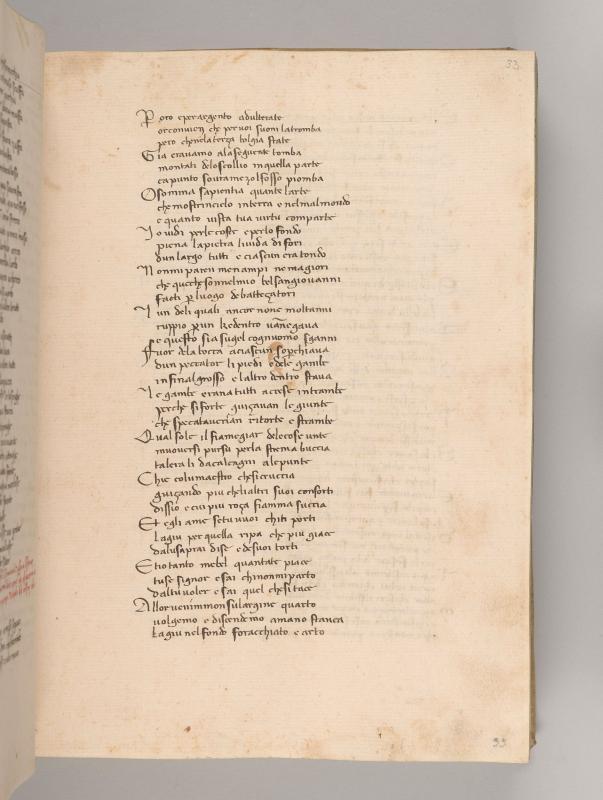 33
Per oro e per argento adulterate
or convien che per voi suoni la tromba
pero che nela terza bolgia state
Gia eravamo ala seguente tomba
montati delo scollio in quella parte
ca punto sovra mezol fosso piomba
O somma sapientia quante larte
che mostri in cielo in terra e nel mal mondo
e quanto iusta tua virtu comparte
Io vidi per le coste e per lo fondo
piena la pietra livida di fori
dun largo tutti e ciascun era tondo
Non mi paren men ampi ne magiori
che que che son nel mio bel san giovanni
facti per luogo de battezatori
I un deli quali ancor non e molt anni
ruppio per un che dentro vanegava
e questo sia sugel cognuomo sganni
Fuor dela bocca a ciascun soperchiava
dun peccator li piedi e dele gambe
infinal grosso e laltro dentro stava
Le gambe erana tutti accese intrambe
perche si forte guizavan le giunte
che spezataverian ritorte e strambe
Qual sole il fiamegiar dele cose unte
muoversi pur su per la strema buccia
tal era li da calcagni ale punte
Chie colui maestro che si cruccia
guizando piu che li altri suoi consorti
dissio e cui piu roza fiamma succia
Et egli a me se tu vuoi chi ti porti
la giu per quella ripa che piu giace
da lui saprai di se e de suoi torti
Et io tanto mebel quanta te piace
tu se signor e sai chi non mi parto
dal tu voler e sai quel che si tace
Allor venimmon su largine quarto
volgemo e discendemo a mano stanca
la giu nel fondo foracchiato e arto
33